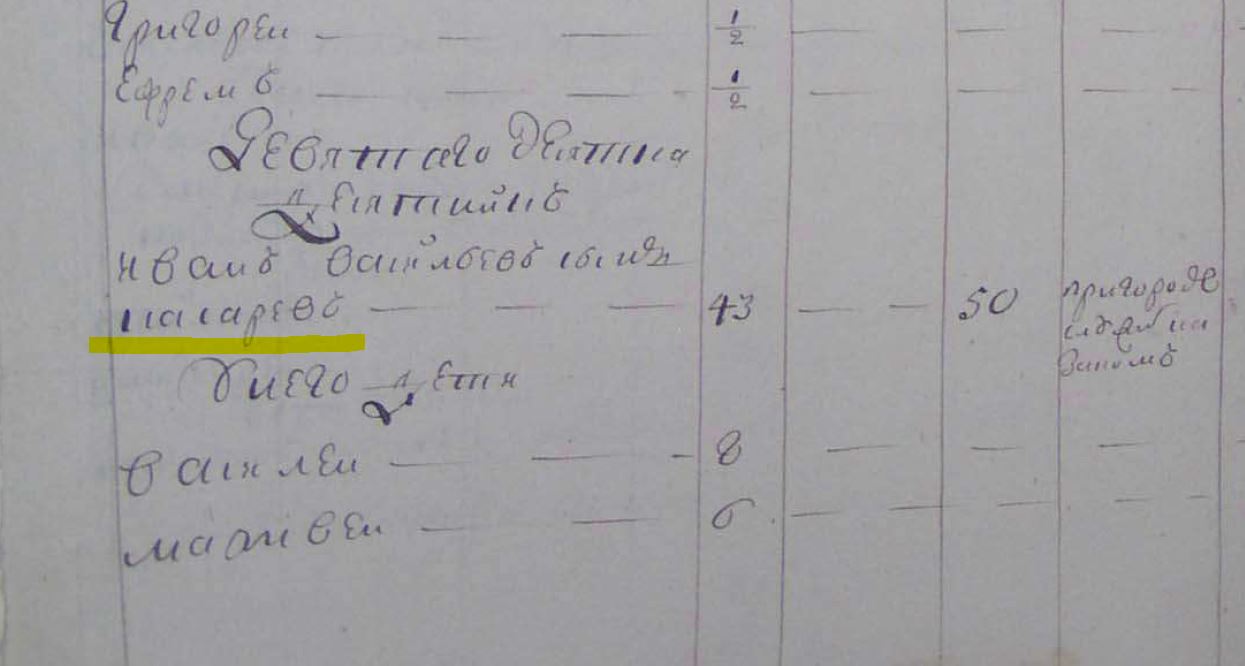 Григореи — — — 1/2 — — —
Ефремъ — — — 1/2 — — —
Девятаго десятка
Десятникъ
Иванъ Васильевъ сынъ
касаревъ — — — 43 — — 50 пригороде
У него дети
Василеи — — — 8 — — —
матвеи — — — 6 — — — — —